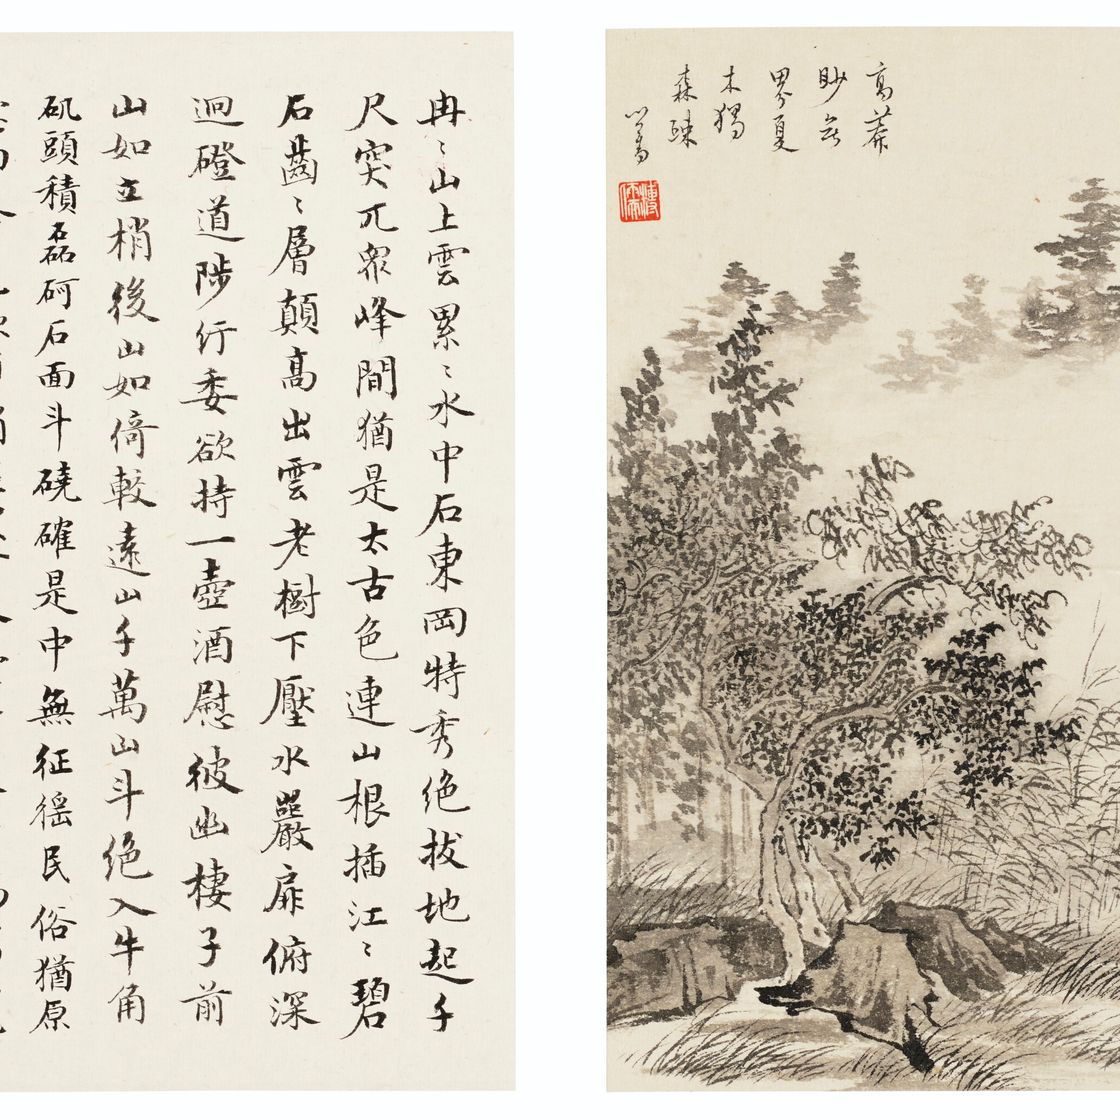 高莽
眇無
界夏
木獨
森疎
心畬
溥儒
冉〻山上雲累〻水中石東岡特秀絕拔地起千
尺突兀衆峰間猶是太古色連山根插江〻碧
石齒〻層顛高出雲老樹下壓水巖扉俯深
迥磴道陟行委欲持一壺酒慰彼幽棲子前
山如立梢後山如倚較遠山千萬山斗絕入牛角
矶頭積磊砢石面斗磽確是中無征徭民俗猶原